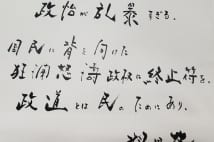 政治が乱暴すぎる。
国民に背を向けた
狂瀾怒濤政权に終止符を。
政道とは民のためにあり。